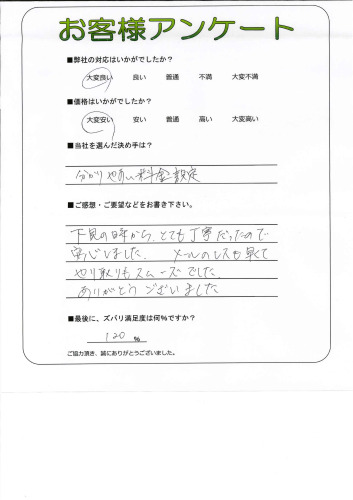 お客様アンケート
■弊社の対応はいかがでしたか？
大変良い 良い 普通 不満 大変不満
■価格はいかがでしたか？
大変安い 安い 普通 高い 大変高い
■当社を選んだ決め手は？
分かりやすい料金設定
■ご感想・ご要望などをお書き下さい。
下見の時から、とても丁寧だったので
安心しました。 メールのレスも早くて
やり取りもスムーズでした。
ありがとうございました
■最後に、ズバリ満足度は何%ですか？
120 %
ご協力頂き、誠にありがとうございました。